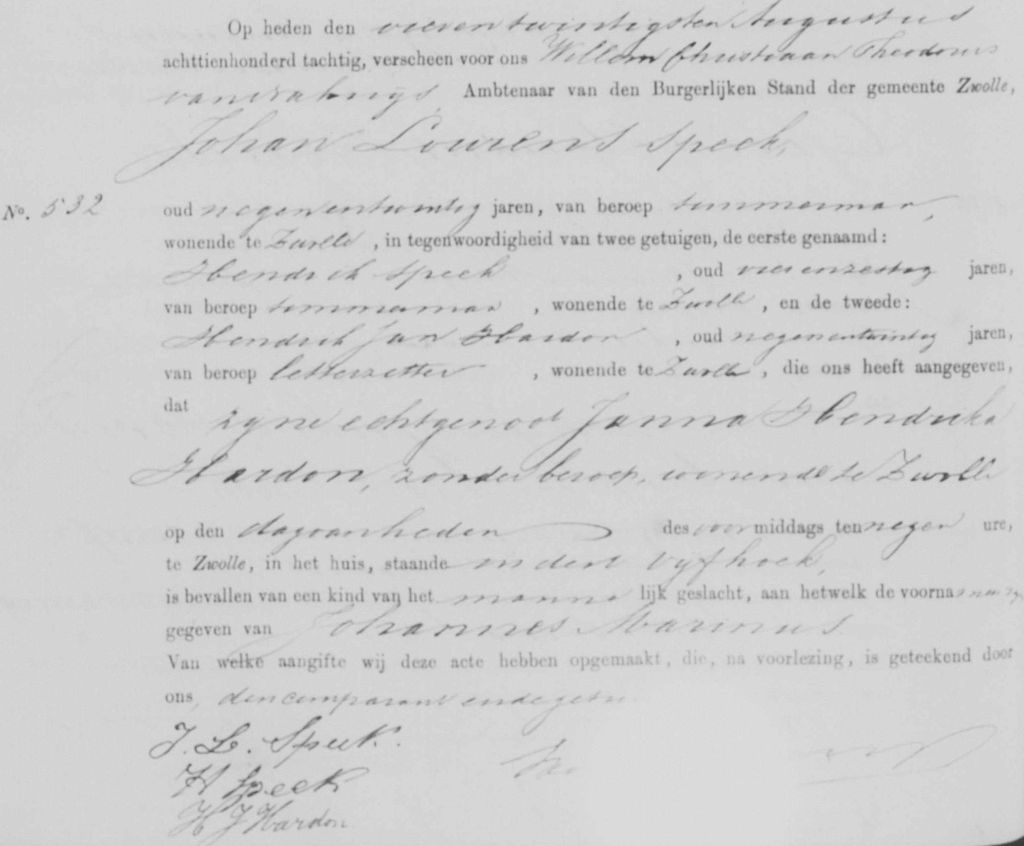 Op heden den vierentwintigsten Augustus
achttienhonderd tachtig, verscheen voor ons Willem Christiaan Theodorus
Ambtenaar van den Burgerlijken Stand der gemeente Zwolle,
Johan Lourens Speek,
No. 532
oud negenentwintig jaren, van beroep timmerman,
wonende te Zwolle, in tegenwoordigheid van twee getuigen, de eerste genaamd:
Hendrik Speek, oud vierenzestig jaren,
van beroep timmerman, wonende te Zwolle, en de tweede:
Hendrik Jan Hardon, oud negenentwintig jaren,
van beroep letterzetter, wonende te Zwolle, die ons heeft aangegeven,
dat zyne echtgenoot Janna Hendrika
Hardon, zonder beroep, wonende te Zwolle
op den dag van heden des voormiddags ten negen ure,
te Zwolle, in het huis, staande in den Vyfhoek,
is bevallen van een kind van het mannelijk geslacht, aan hetwelk de voorna
gegeven van Johannes Marinus
Van welke aangifte wij deze acte hebben opgemaakt, die, na voorlezing, is geteekend door
ons, den comparant en de getu
J. L. Speek.
H Speek
H J Hardon